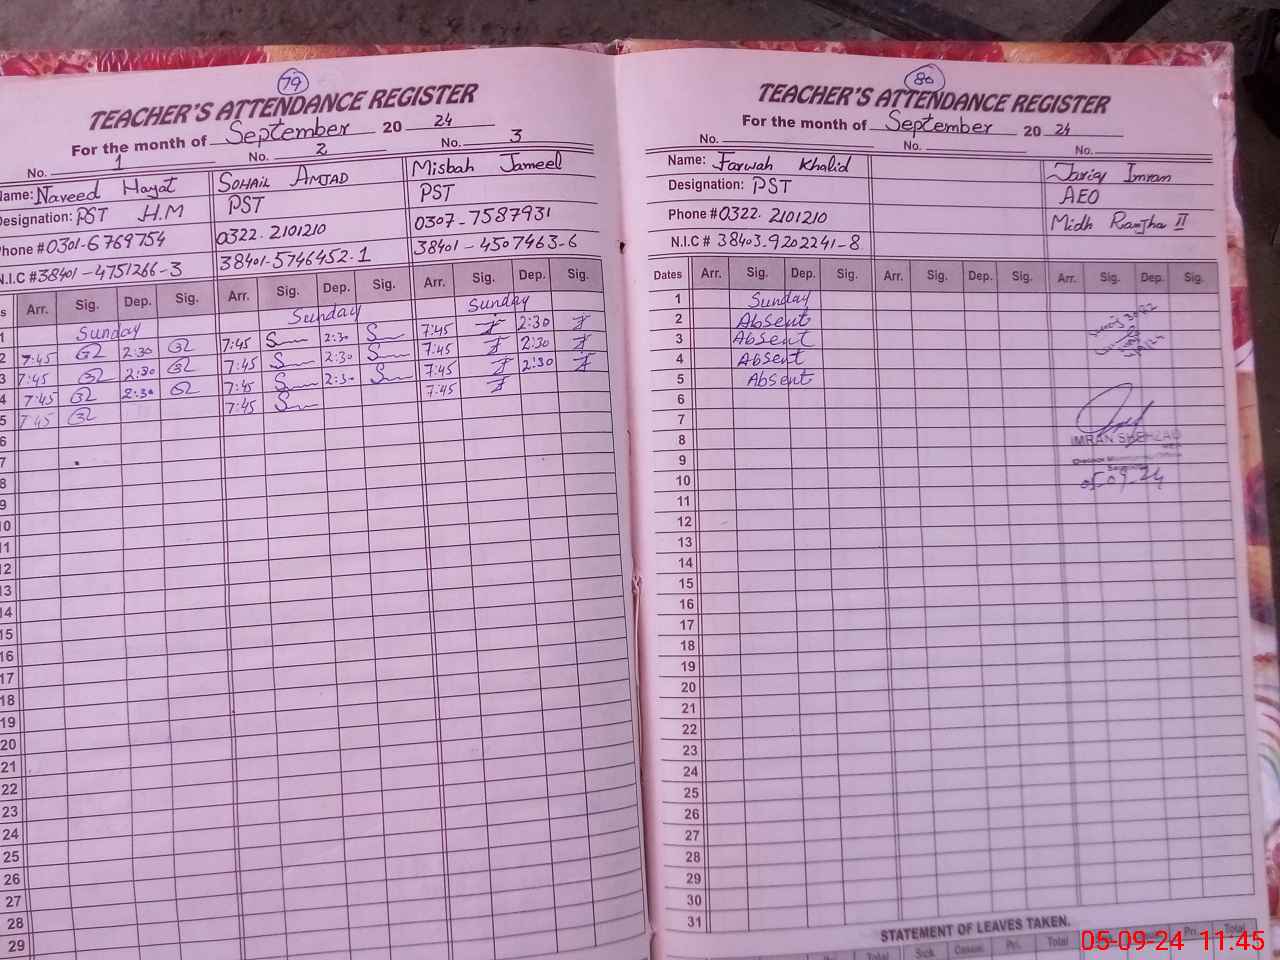 79
TEACHER'S ATTENDANCE REGISTER
For the month of September 2024
No. 1 No. 2 No. 3
Name: Naveed Hayat SOHAIL AMJAD Misbah Jameel
Designation: PST H.M PST PST
Phone # 0301-6769754 0322.2101210 0307-7587931
N.I.C # 38401-4751266-3 38401-5746452.1 38401-4507463-6
Arr. Sig. Dep. Sig. Arr. Sig. Dep. Sig. Arr. Sig. Dep. Sig.
1 Sunday Sunday Sunday
2 7:45 2:30 7:45 2:30 7:45 2:30
3 7:45 2:30 7:45 2:30 7:45 2:30
4 7:45 2:30 7:45 2:30 7:45 2:30
5 7:45 7:45 7:45
6
7
8
9
10
11
12
13
14
15
16
17
18
19
20
21
22
23
24
25
26
27
28
29
80
TEACHER'S ATTENDANCE REGISTER
For the month of September 2024
No. No. No.
Name: Farwah Khalid Tariq Imran
Designation: PST AEO
Phone # 0322.2101210 Midh Ranjha II
N.I.C # 38403.9202241-8
Dates Arr. Sig. Dep. Sig. Arr. Sig. Dep. Sig. Arr. Sig. Dep. Sig.
1 Sunday
2 Absent
3 Absent
4 Absent
5 Absent
6
7
8 IMRAN SHEHZAD
9
10 05-09-24
11
12
13
14
15
16
17
18
19
20
21
22
23
24
25
26
27
28
29
30
31
STATEMENT OF LEAVES TAKEN.
Total Sick Casual Pri. Total Pri. Total
05-09-24 11:45